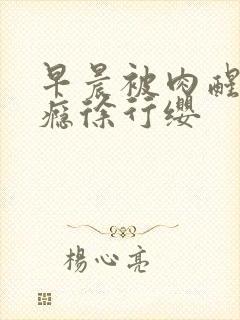 早晨被肉醒
瘾徐行缨
楊心亮